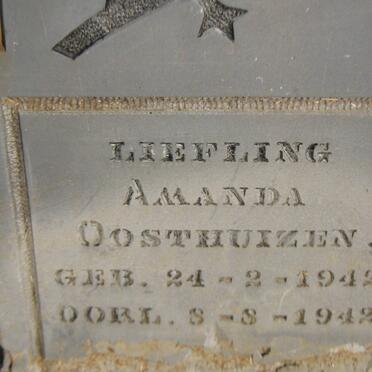 LIEFLING
AMANDA
OOSTHUIZEN.
GEB. 24-2-1942
OORL. 8-8-1942